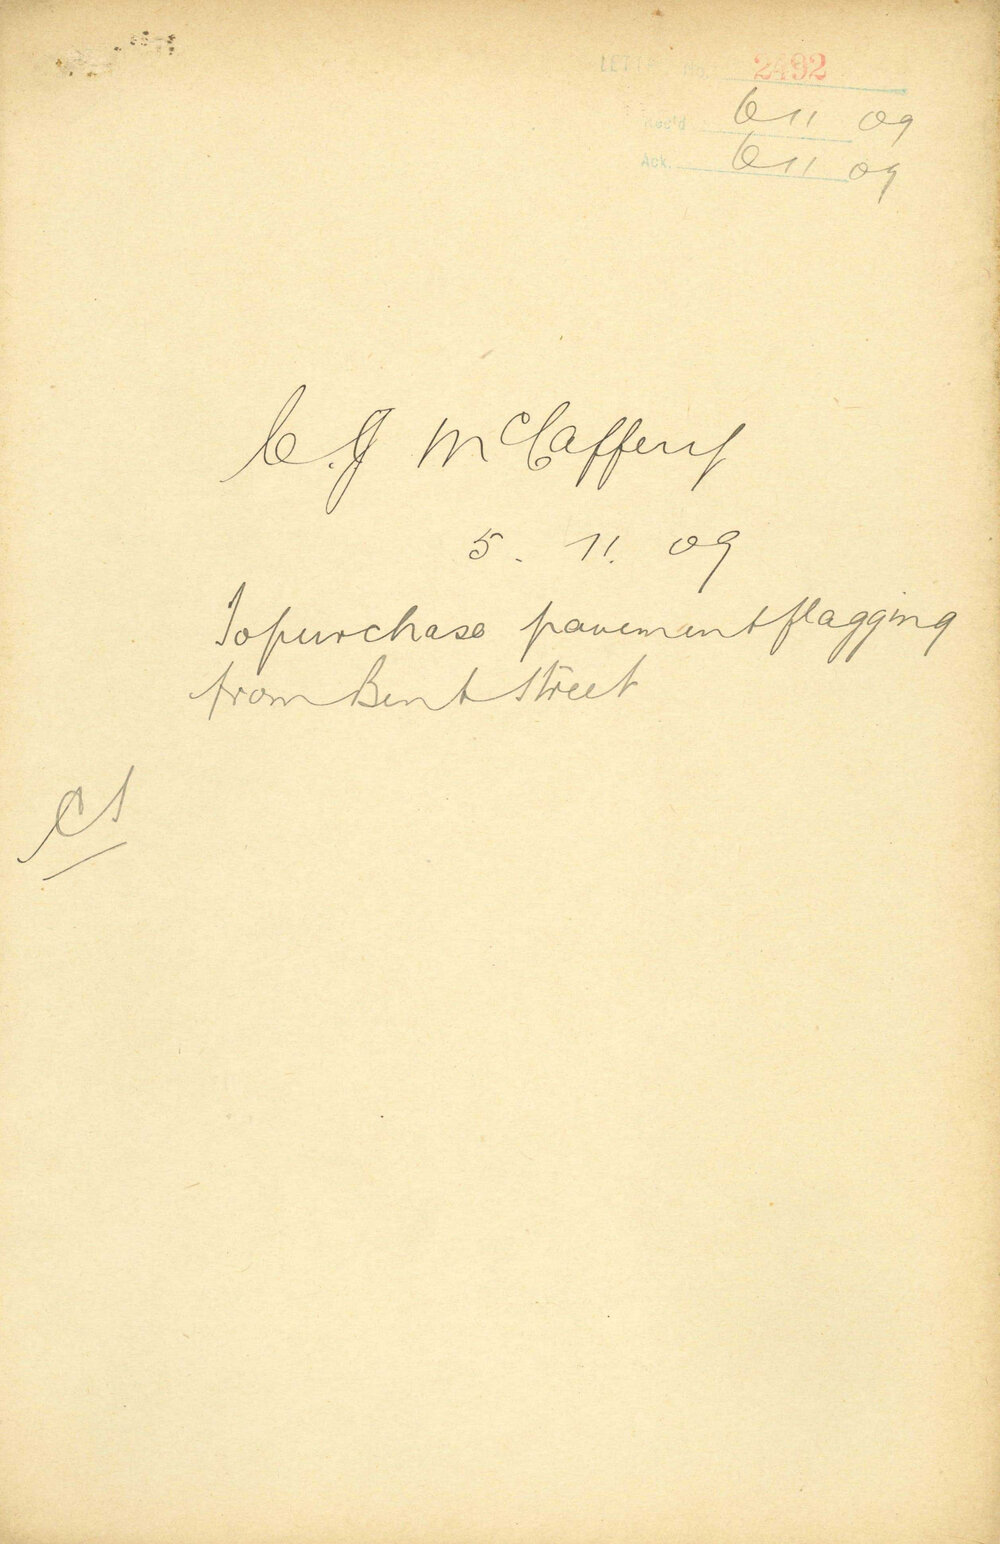 LETTER No. 2492
Rec'd 6 11 09
Ack. 6 11 09
C. J McCafferry
5. 11. 09
To purchase pavement flagging
from Bent Street
CS